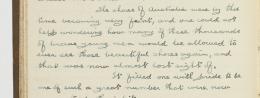 The shores of Australia were by this
time becoming very faint, and one could not
help wondering how many of these thousands
of brave young men would be allowed to
ever see those beautiful shores again, and
that was now almost lost sight of.
It filled one with pride to be
one of such a great number that were now